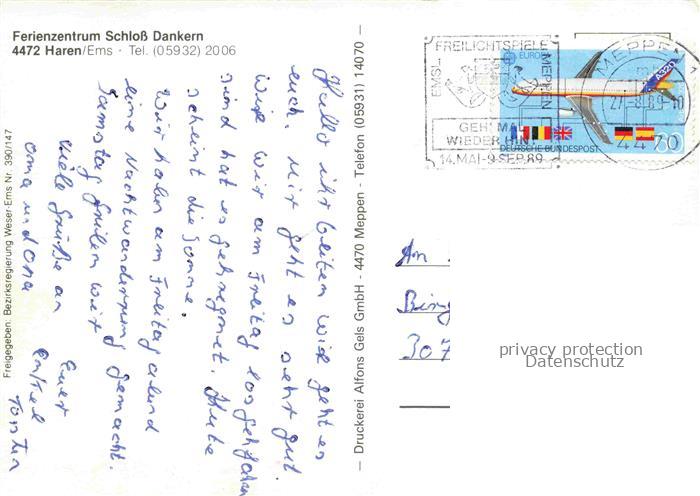 Ferienzentrum Schloß Dankern
4472 Haren/Ems · Tel. (05932) 2006
Freigegeben: Bezirksregierung Weser-Ems Nr. 390/147
Hallo ihr beiten wie geht es
euch. Mir geht es sehr gut
wie wir am Freitag losgefahren
sind hat es gehregnet. Heute
scheint die Sonne.
Wir haben am Freitag abend
eine Nachtwanderung gemacht.
Samstag grillen wir
viele Grüße an Euer
oma und opa Enkel
Torsten
— Druckerei Alfons Gels GmbH - 4470 Meppen - Telefon (05931) 14070 —
FREILICHTSPIELE
EMS-
MEPPEN
GEH' MAL
WIEDER HIN!
14. MAI - 9. SEP. 89
EUROPA
A320
60
DEUTSCHE BUNDESPOST
MEPPEN
27.-8.89-10
4470
An
Bing
307
privacy protection
Datenschutz